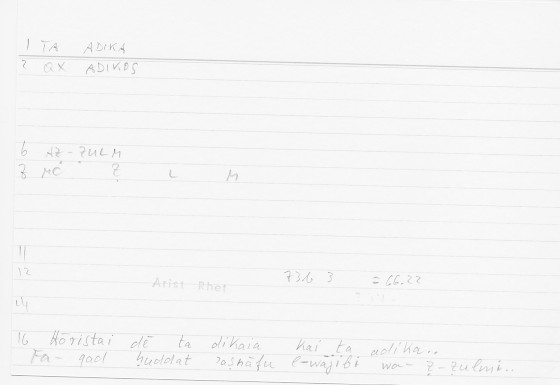 1 TA ADIKA
2 QX ADIKOS
6 AẒ-ẒULM
8 MC Ẓ L M
11
12 Arist Rhet 73b 3 = 66.22
14
16 Hōristai dē ta dikaia kai ṭa adika..
Fa- qad ḥuddat ʾaṣnāfu l-wājibi wa- ẓ-ẓulmi..